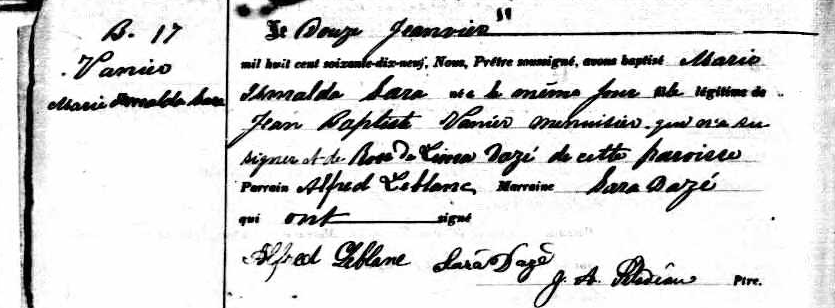 B. 17
Vanier
Marie Ismalda Sara
Le Douze Jeanvier
mil huit cent soixante-dix-neuf, Nous, Prêtre soussigné, avons baptisé Marie
Ismalda Sara née le même jour fille légitime de
Jean Baptiste Vanier menuisier qui n'a su
signer et de Rose de Lima Dazé de cette paroisse
Parrain Alfred Leblanc, Marraine Sara Dazé
qui ont signé
Alfred Leblanc Sara Dazé
J. A. Ptre.